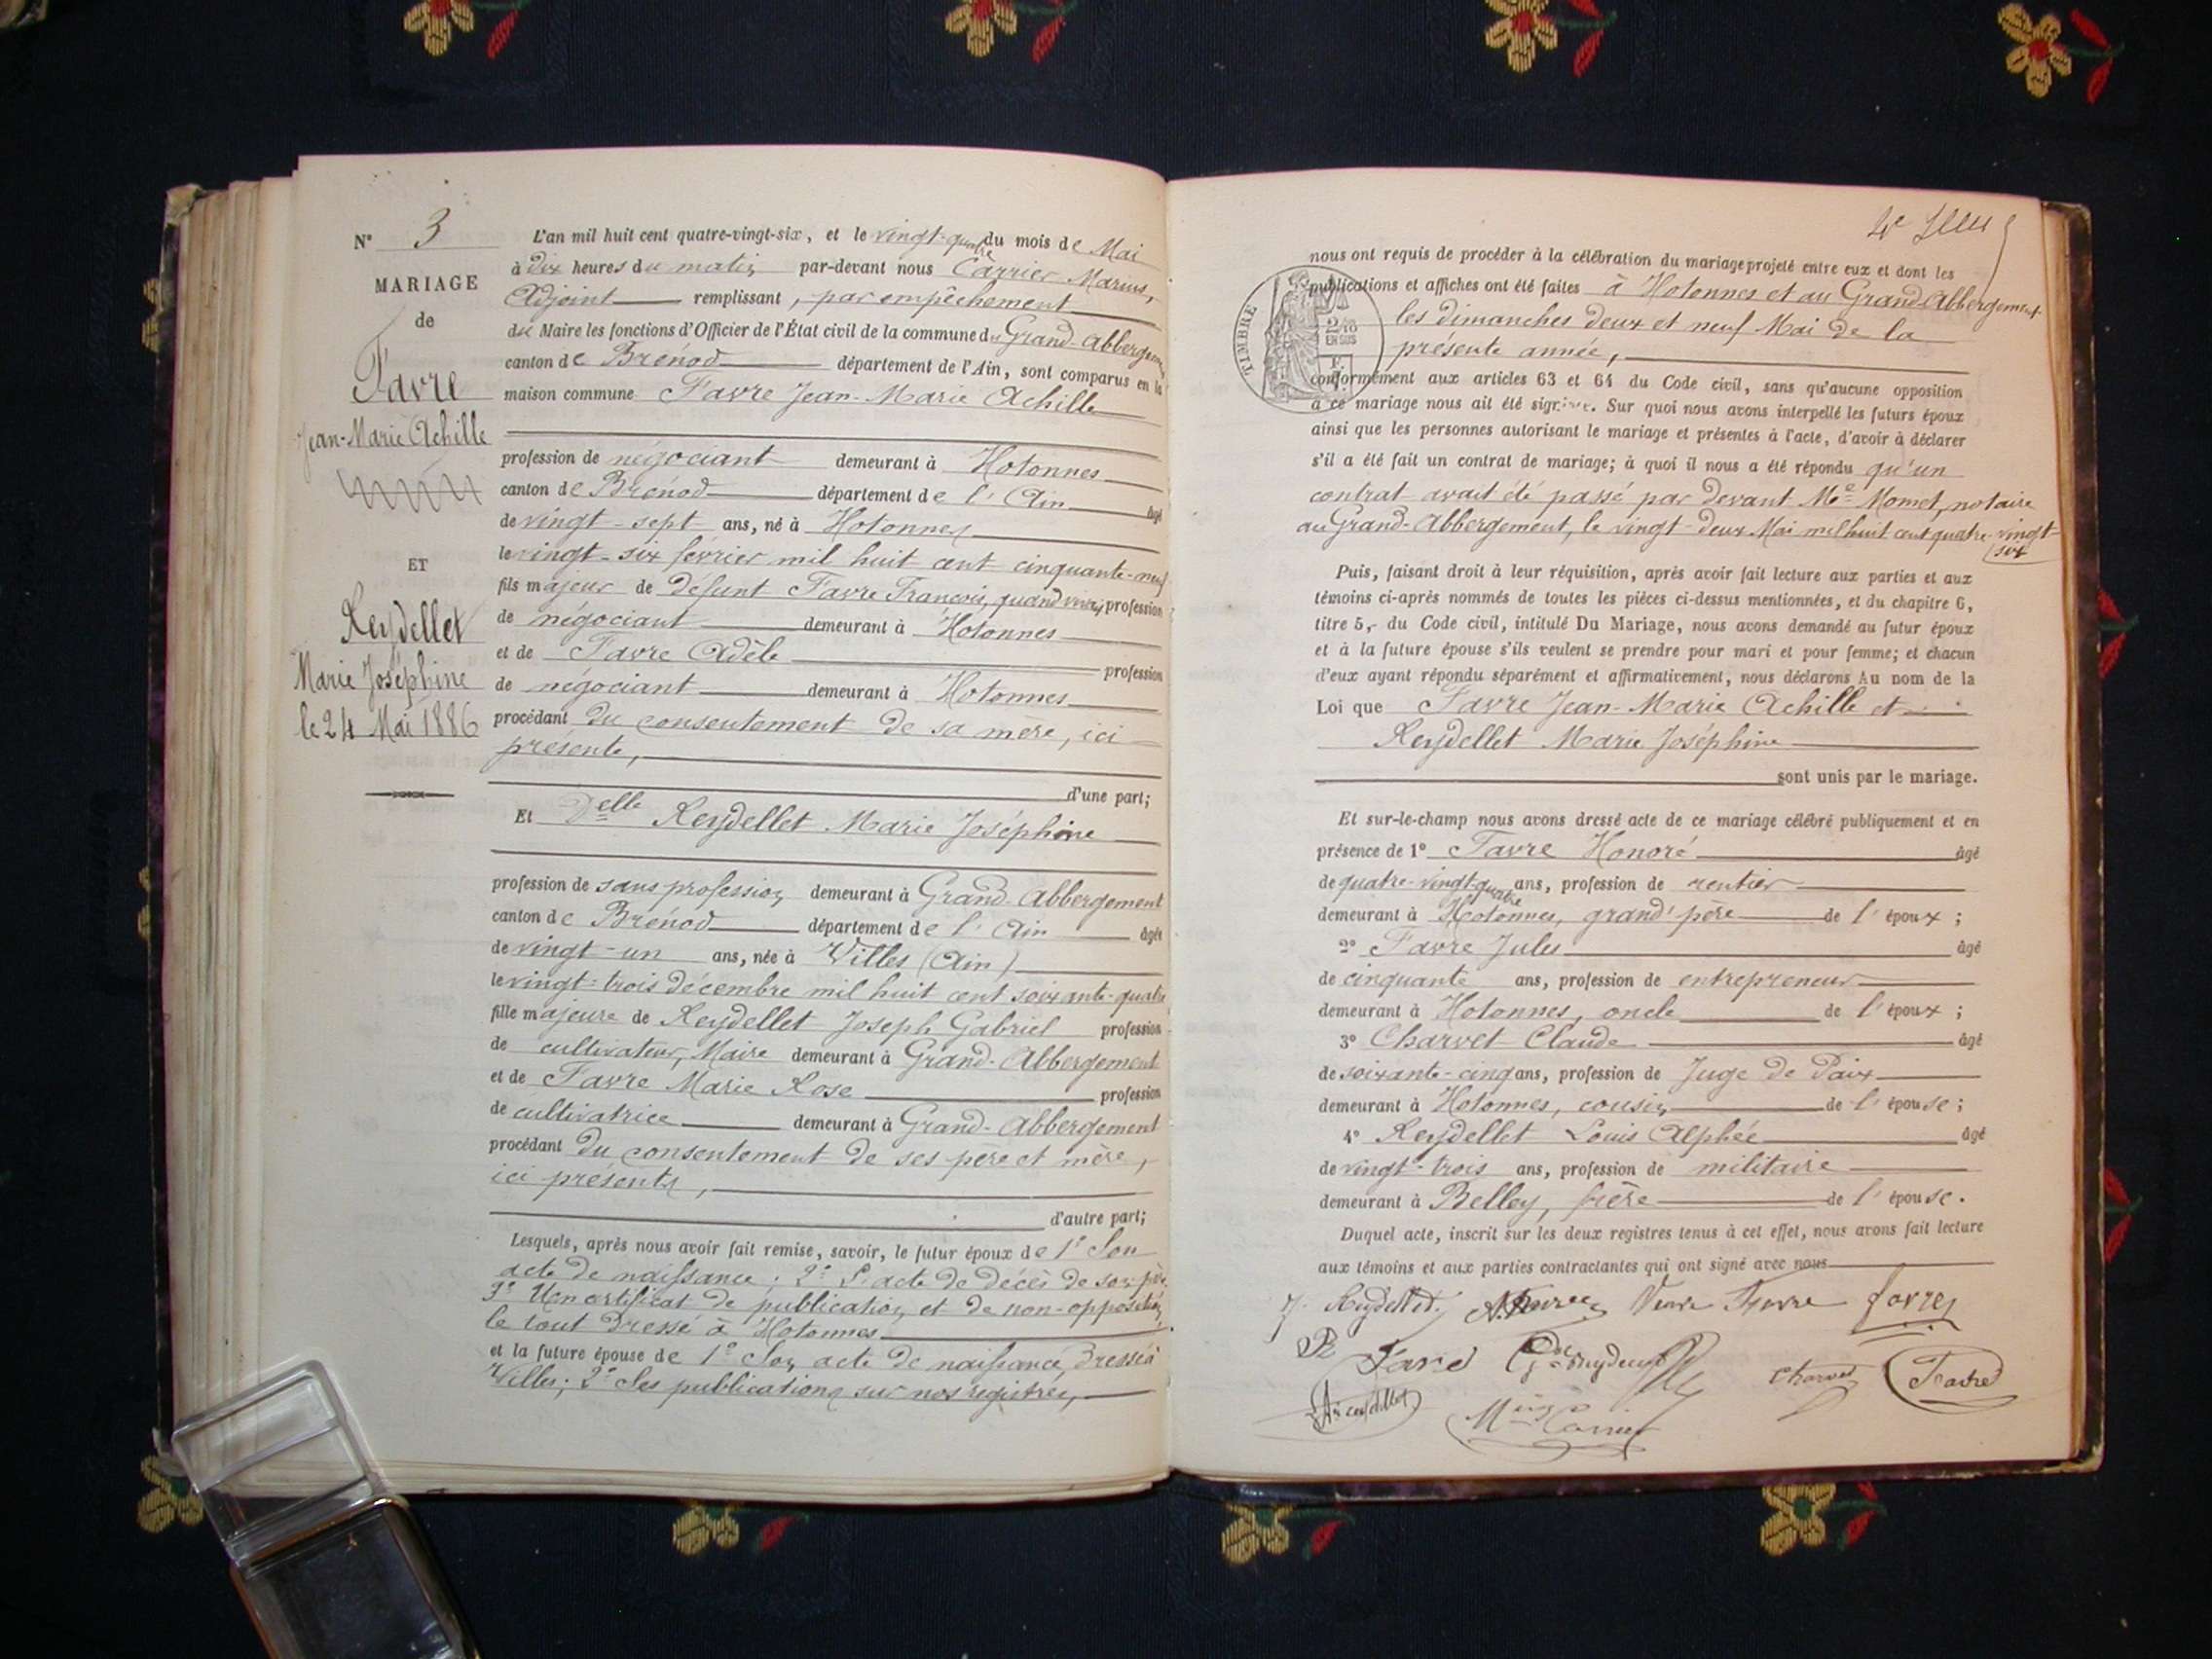 N° 3
MARIAGE
de
Favre
Jean-Marie Achille
ET
Reydellet
Marie Joséphine
le 24 Mai 1886
L'an mil huit cent quatre-vingt-six, et le vingt-quatre du mois de Mai
à dix heures du matin par-devant nous Carrier Marius,
Adjoint remplissant, par empêchement
du Maire les fonctions d'Officier de l'État civil de la commune du Grand-Abbergement
canton de Brénod département de l'Ain, sont comparus en la
maison commune Favre Jean-Marie Achille
profession de négociant demeurant à Hotonnes
canton de Brénod département de l'Ain âgé
de vingt-sept ans, né à Hotonnes
le vingt-six février mil huit cent cinquante-neuf
fils majeur de défunt Favre François, quand vivait profession
de négociant demeurant à Hotonnes
et de Favre Adèle profession
de négociant demeurant à Hotonnes
procédant du consentement de sa mère, ici
présente,
d'une part;
Et Delle Reydellet Marie Joséphine
profession de sans profession demeurant à Grand-Abbergement
canton de Brénod département de l'Ain âgée
de vingt-un ans, née à Villes (Ain)
le vingt-trois décembre mil huit cent soixante-quatre
fille majeure de Reydellet Joseph Gabriel profession
de cultivateur, Maire demeurant à Grand-Abbergement
et de Favre Marie Rose profession
de cultivatrice demeurant à Grand-Abbergement
procédant du consentement de ses père et mère,
ici présents,
d'autre part;
Lesquels, après nous avoir fait remise, savoir, le futur époux de 1° Son
acte de naissance; 2° L'acte de décès de son père
3° Un certificat de publication et de non-opposition,
le tout dressé à Hotonnes
et la future épouse de 1° Son acte de naissance, dressé à
Villes; 2° Ses publications sur nos registres,
TIMBRE
2/10
EN SUS
nous ont requis de procéder à la célébration du mariage projeté entre eux et dont les
publications et affiches ont été faites à Hotonnes et au Grand-Abbergement
les dimanches deux et neuf Mai de la
présente année,
conformément aux articles 63 et 64 du Code civil, sans qu'aucune opposition
à ce mariage nous ait été signifiée. Sur quoi nous avons interpellé les futurs époux
ainsi que les personnes autorisant le mariage et présentes à l'acte, d'avoir à déclarer
s'il a été fait un contrat de mariage; à quoi il nous a été répondu qu'un
contrat avait été passé par devant Me Momet, notaire
au Grand-Abbergement, le vingt-deux Mai mil huit cent quatre-vingt-
six
Puis, faisant droit à leur réquisition, après avoir fait lecture aux parties et aux
témoins ci-après nommés de toutes les pièces ci-dessus mentionnées, et du chapitre 6,
titre 5, du Code civil, intitulé Du Mariage, nous avons demandé au futur époux
et à la future épouse s'ils veulent se prendre pour mari et pour femme; et chacun
d'eux ayant répondu séparément et affirmativement, nous déclarons Au nom de la
Loi que Favre Jean-Marie Achille et
Reydellet Marie Joséphine
sont unis par le mariage.
Et sur-le-champ nous avons dressé acte de ce mariage célébré publiquement et en
présence de 1° Favre Honoré âgé
de quatre-vingt-quatre ans, profession de rentier
demeurant à Hotonnes, grand'père de l'époux;
2° Favre Jules âgé
de cinquante ans, profession de entrepreneur
demeurant à Hotonnes, oncle de l'époux;
3° Charvet Claude âgé
de soixante-cinq ans, profession de Juge de Paix
demeurant à Hotonnes, cousin de l'épouse;
4° Reydellet Louis Alphée âgé
de vingt-trois ans, profession de militaire
demeurant à Belley, frère de l'épouse.
Duquel acte, inscrit sur les deux registres tenus à cet effet, nous avons fait lecture
aux témoins et aux parties contractantes qui ont signé avec nous
J. Reydellet A. Favre Veuve Favre Favre
Favre Charvet Favre
Carrier